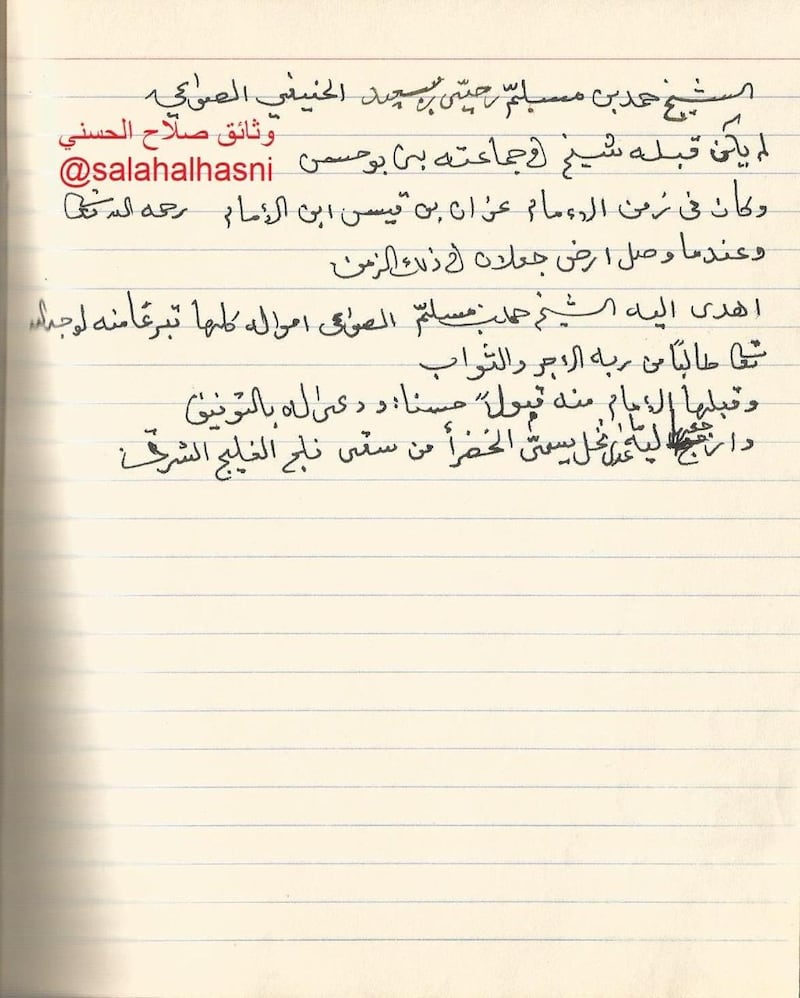 الشيخ حمد بن مسلّم رحيّى بن سعيد الحنيفي الصواعي
وثائق صلاح الحسني
@salahalhasni
لم يكن قبله شيخ في جماعته بني بو حسن
وكان في زمن الامام عزان بن قيس ابن الامام رحمه الله تعالى
وعندما وصل ارض جعلان في ذلك الزمن
اهدى اليه الشيخ حمد بن مسلّم الصواعى امواله كلها تبرعًا منه لوجه الله
تعالى طالبًا من ربه الاجر والثواب
وقبلها الامام منه قبولاً حسنا: ودعى له بالتوفيق
وارجع ليه نخل يسمّى الخضرأ من سقى فلج الفليج الشرقي